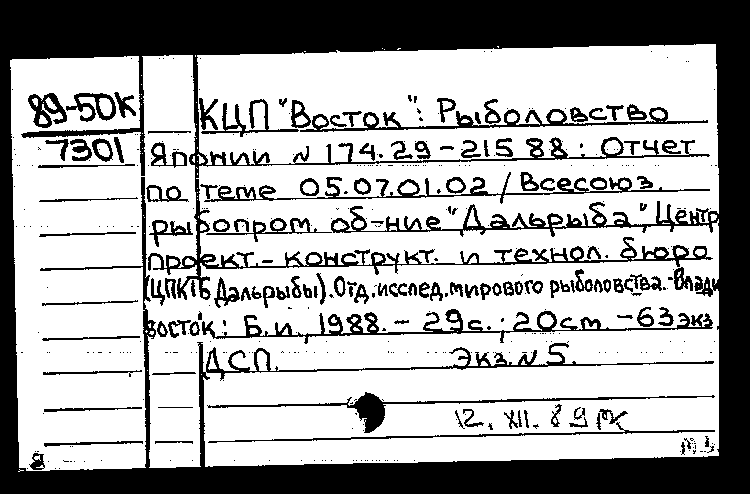 89-50К
7301
КЦП "Восток": Рыболовство
Японии № 174.29-215 88: Отчет
по теме 05.07.01.02 / Всесоюз.
рыбопром. об-ние "Дальрыба", Центр.
проект.- конструкт. и технол. бюро
(ЦПКТБ Дальрыбы). Отд. исслед. мирового рыболовства.-Влади
восток: Б.и., 1988. - 29с.; 20ст. -63 экз.
ДСП. Экз. № 5.
12. XII. 89